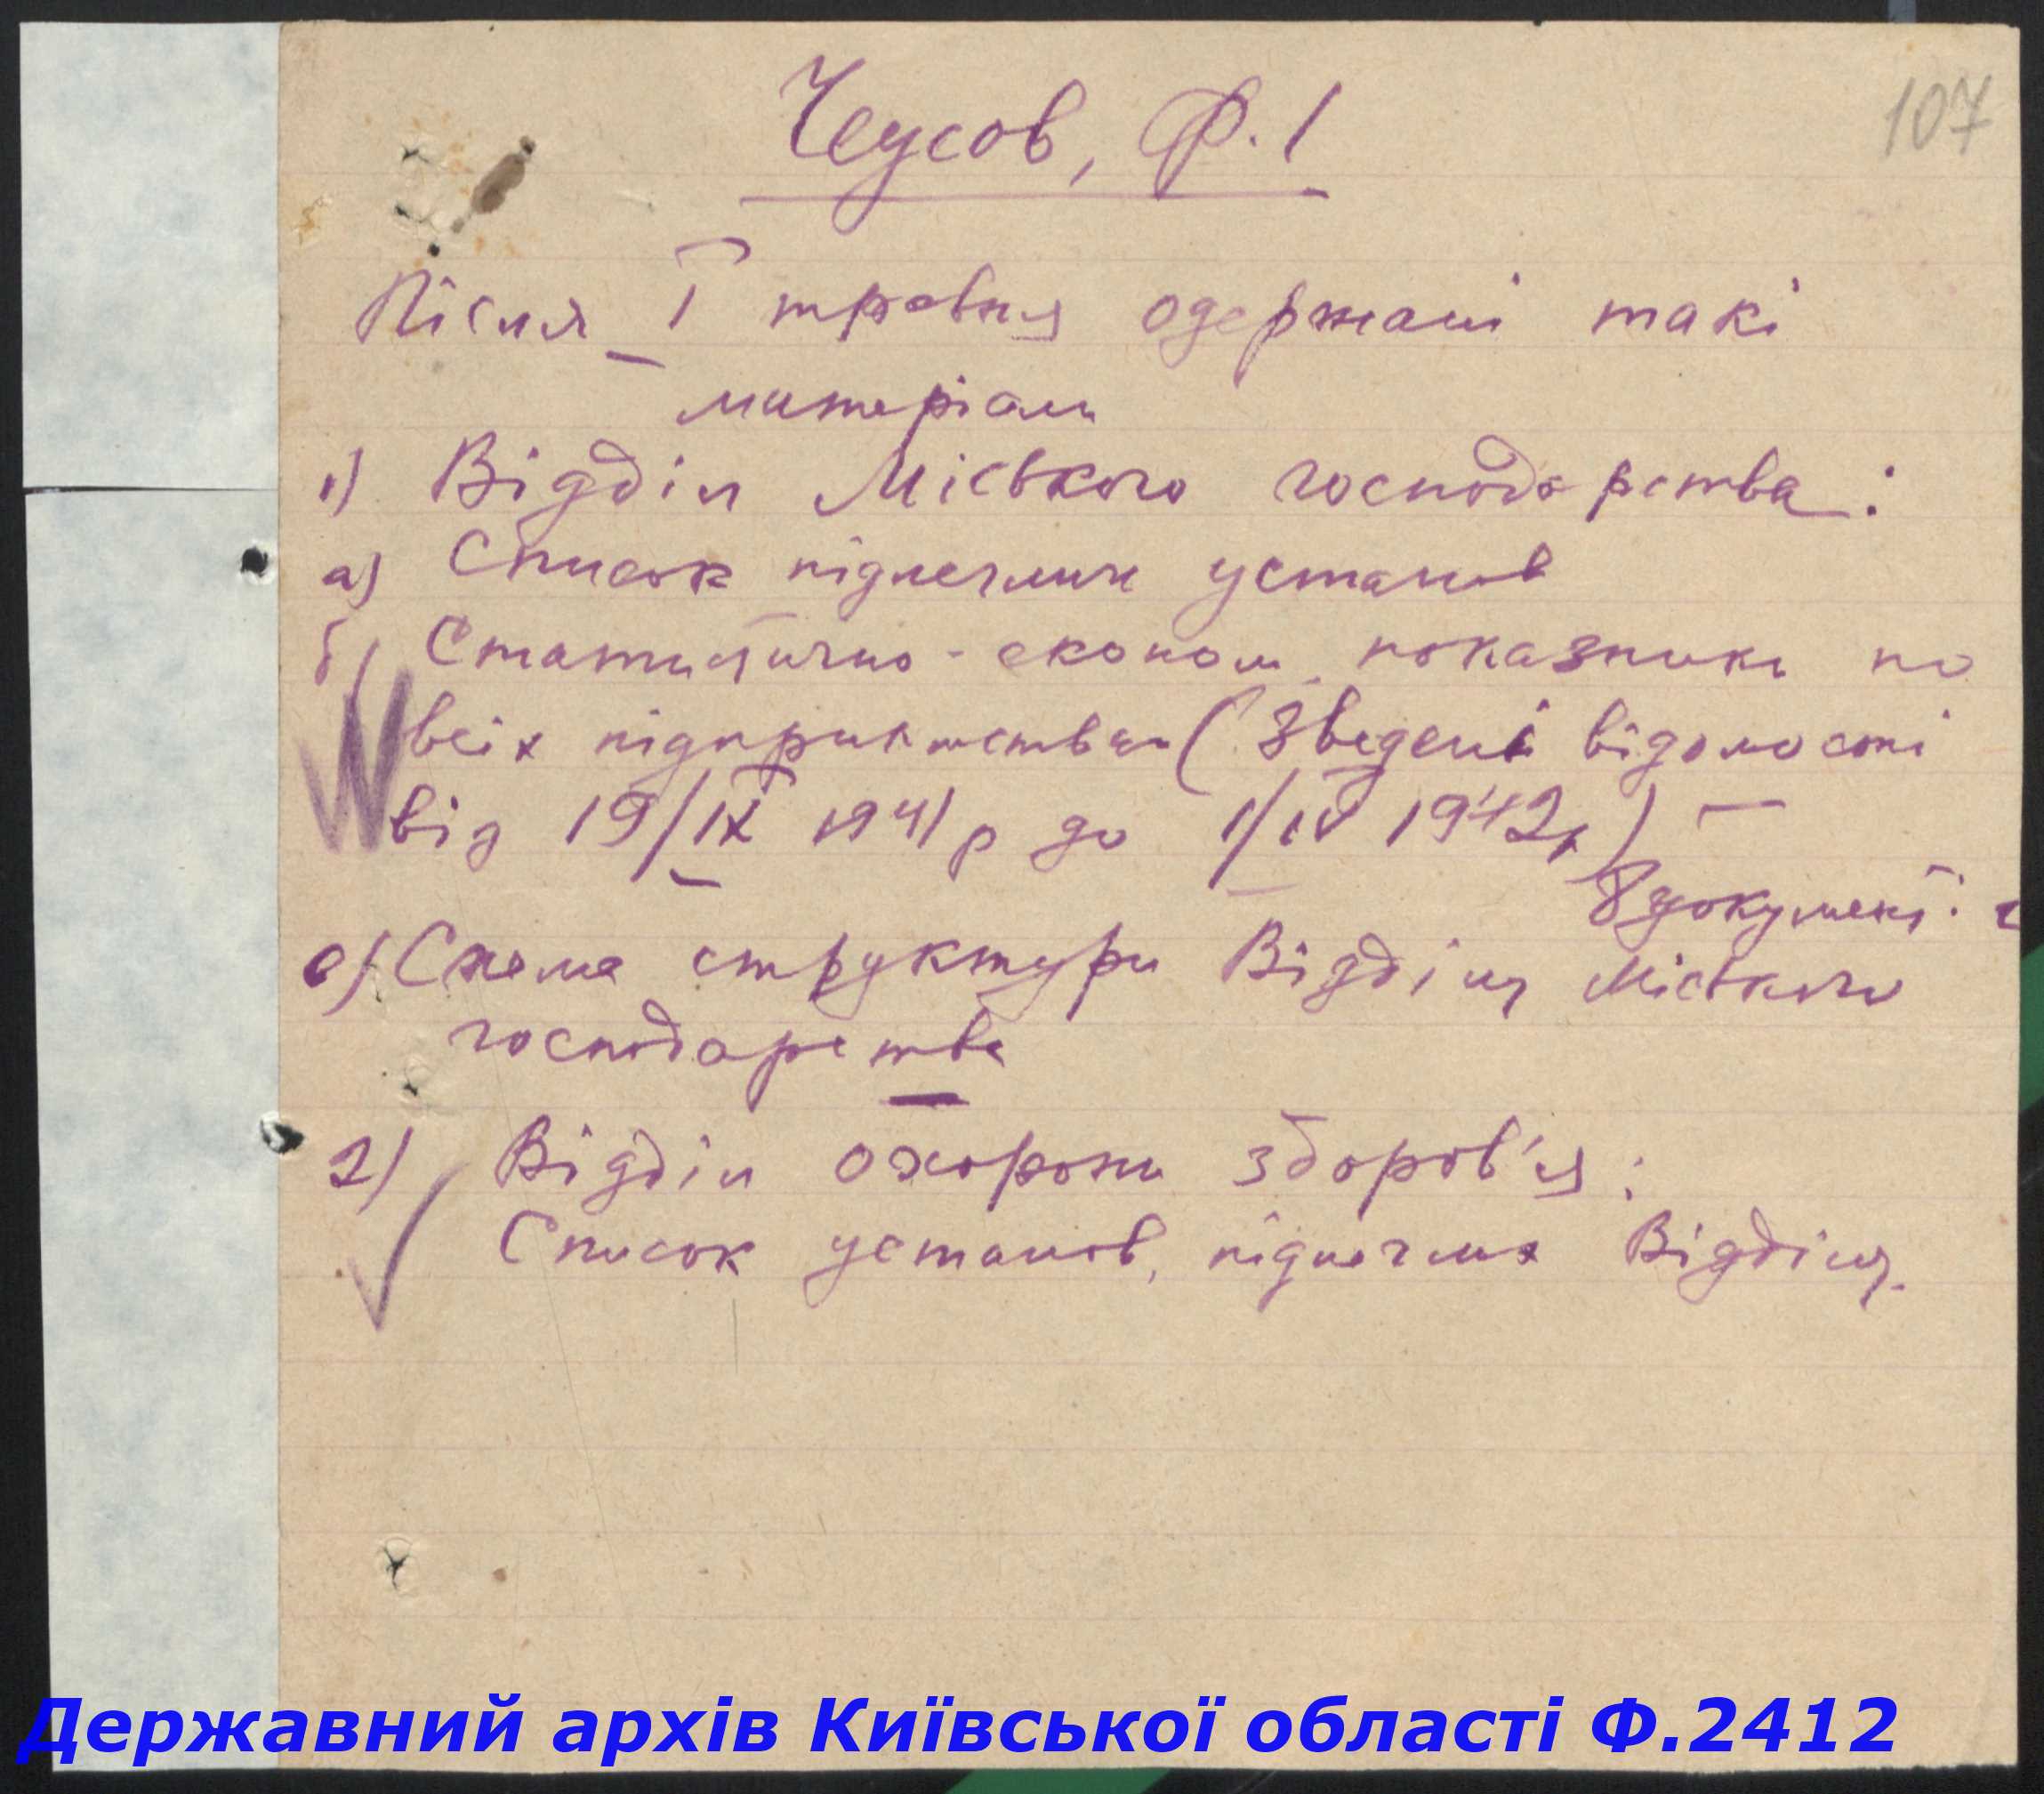 107
Чеусов, Ф. 1
Після I травня одержані такі
матеріали
1) Відділ Міського господарства:
а) Список підлеглих установ
б) Статистично-економ. показники по
всіх підприємствах (Зведені відомості
від 19/IX 1941 р до 1/IV 1942 р) —
8 документ.
в) Схема структури Відділу Міського
господарства
2) Відділ охорони здоров'я:
Список установ, підлеглих Відділу.
Державний архів Київської області Ф.2412